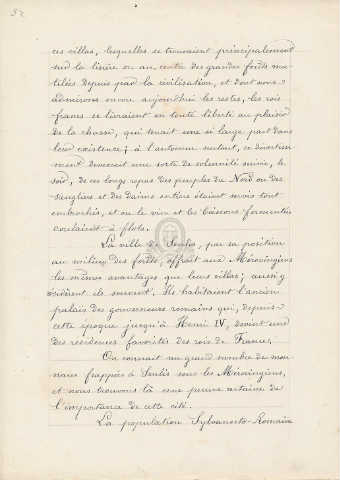 52
ces villas, lesquelles se trouvaient principalement
sur la lisière ou au centre des grandes forêts mu-
tilées depuis par la civilisation, et dont nous
admirons encore aujourd'hui les restes, les rois
francs se livraient en toute liberté au plaisir
de la chasse, qui tenait une si large part dans
leur existence; à l'automne surtout, ce divertisse-
ment devenait une sorte de solennité suivie, le
soir, de ces longs repas des peuples du Nord où des
sangliers et des daims entiers étaient servis tout
embrochés, et où le vin et les boissons fermentées
coulaient à flots.
La ville de Senlis, par sa position
au milieu des forêts, offrait aux Mérovingiens
les mêmes avantages que leurs villas; aussi y
vinrent ils souvent. Ils habitaient l'ancien
palais des gouverneurs romains qui, depuis
cette époque jusqu'à Henri IV, devint une
des résidences favorites des rois de France.
On connait un grand nombre de mon-
naies frappées à Senlis sous les Mérovingiens,
et nous trouvons là une preuve certaine de
l'importance de cette cité.
La population Sylvanecto-Romaine